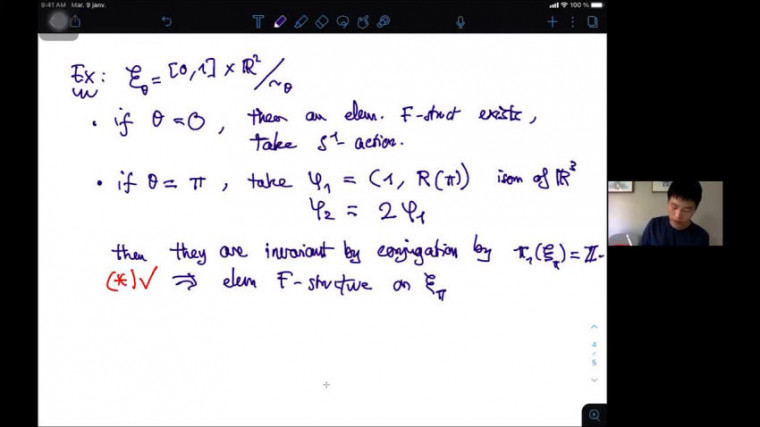 9:41 AM Mar. 9 janv.
100 %
Ex: ξ_θ = [0,1] × ℝ² / ~θ
• if θ = 0, then an elem. F-struct exists,
take S¹-action.
• if θ = π, take φ₁ = (1, R(π)) isom of ℝ³
φ₂ = 2φ₁
then they are invariant by conjugation by π₁(ξ_π) = ℤ-
(*) ✓ ⇒ elem F-structure on ξ_π
4
5